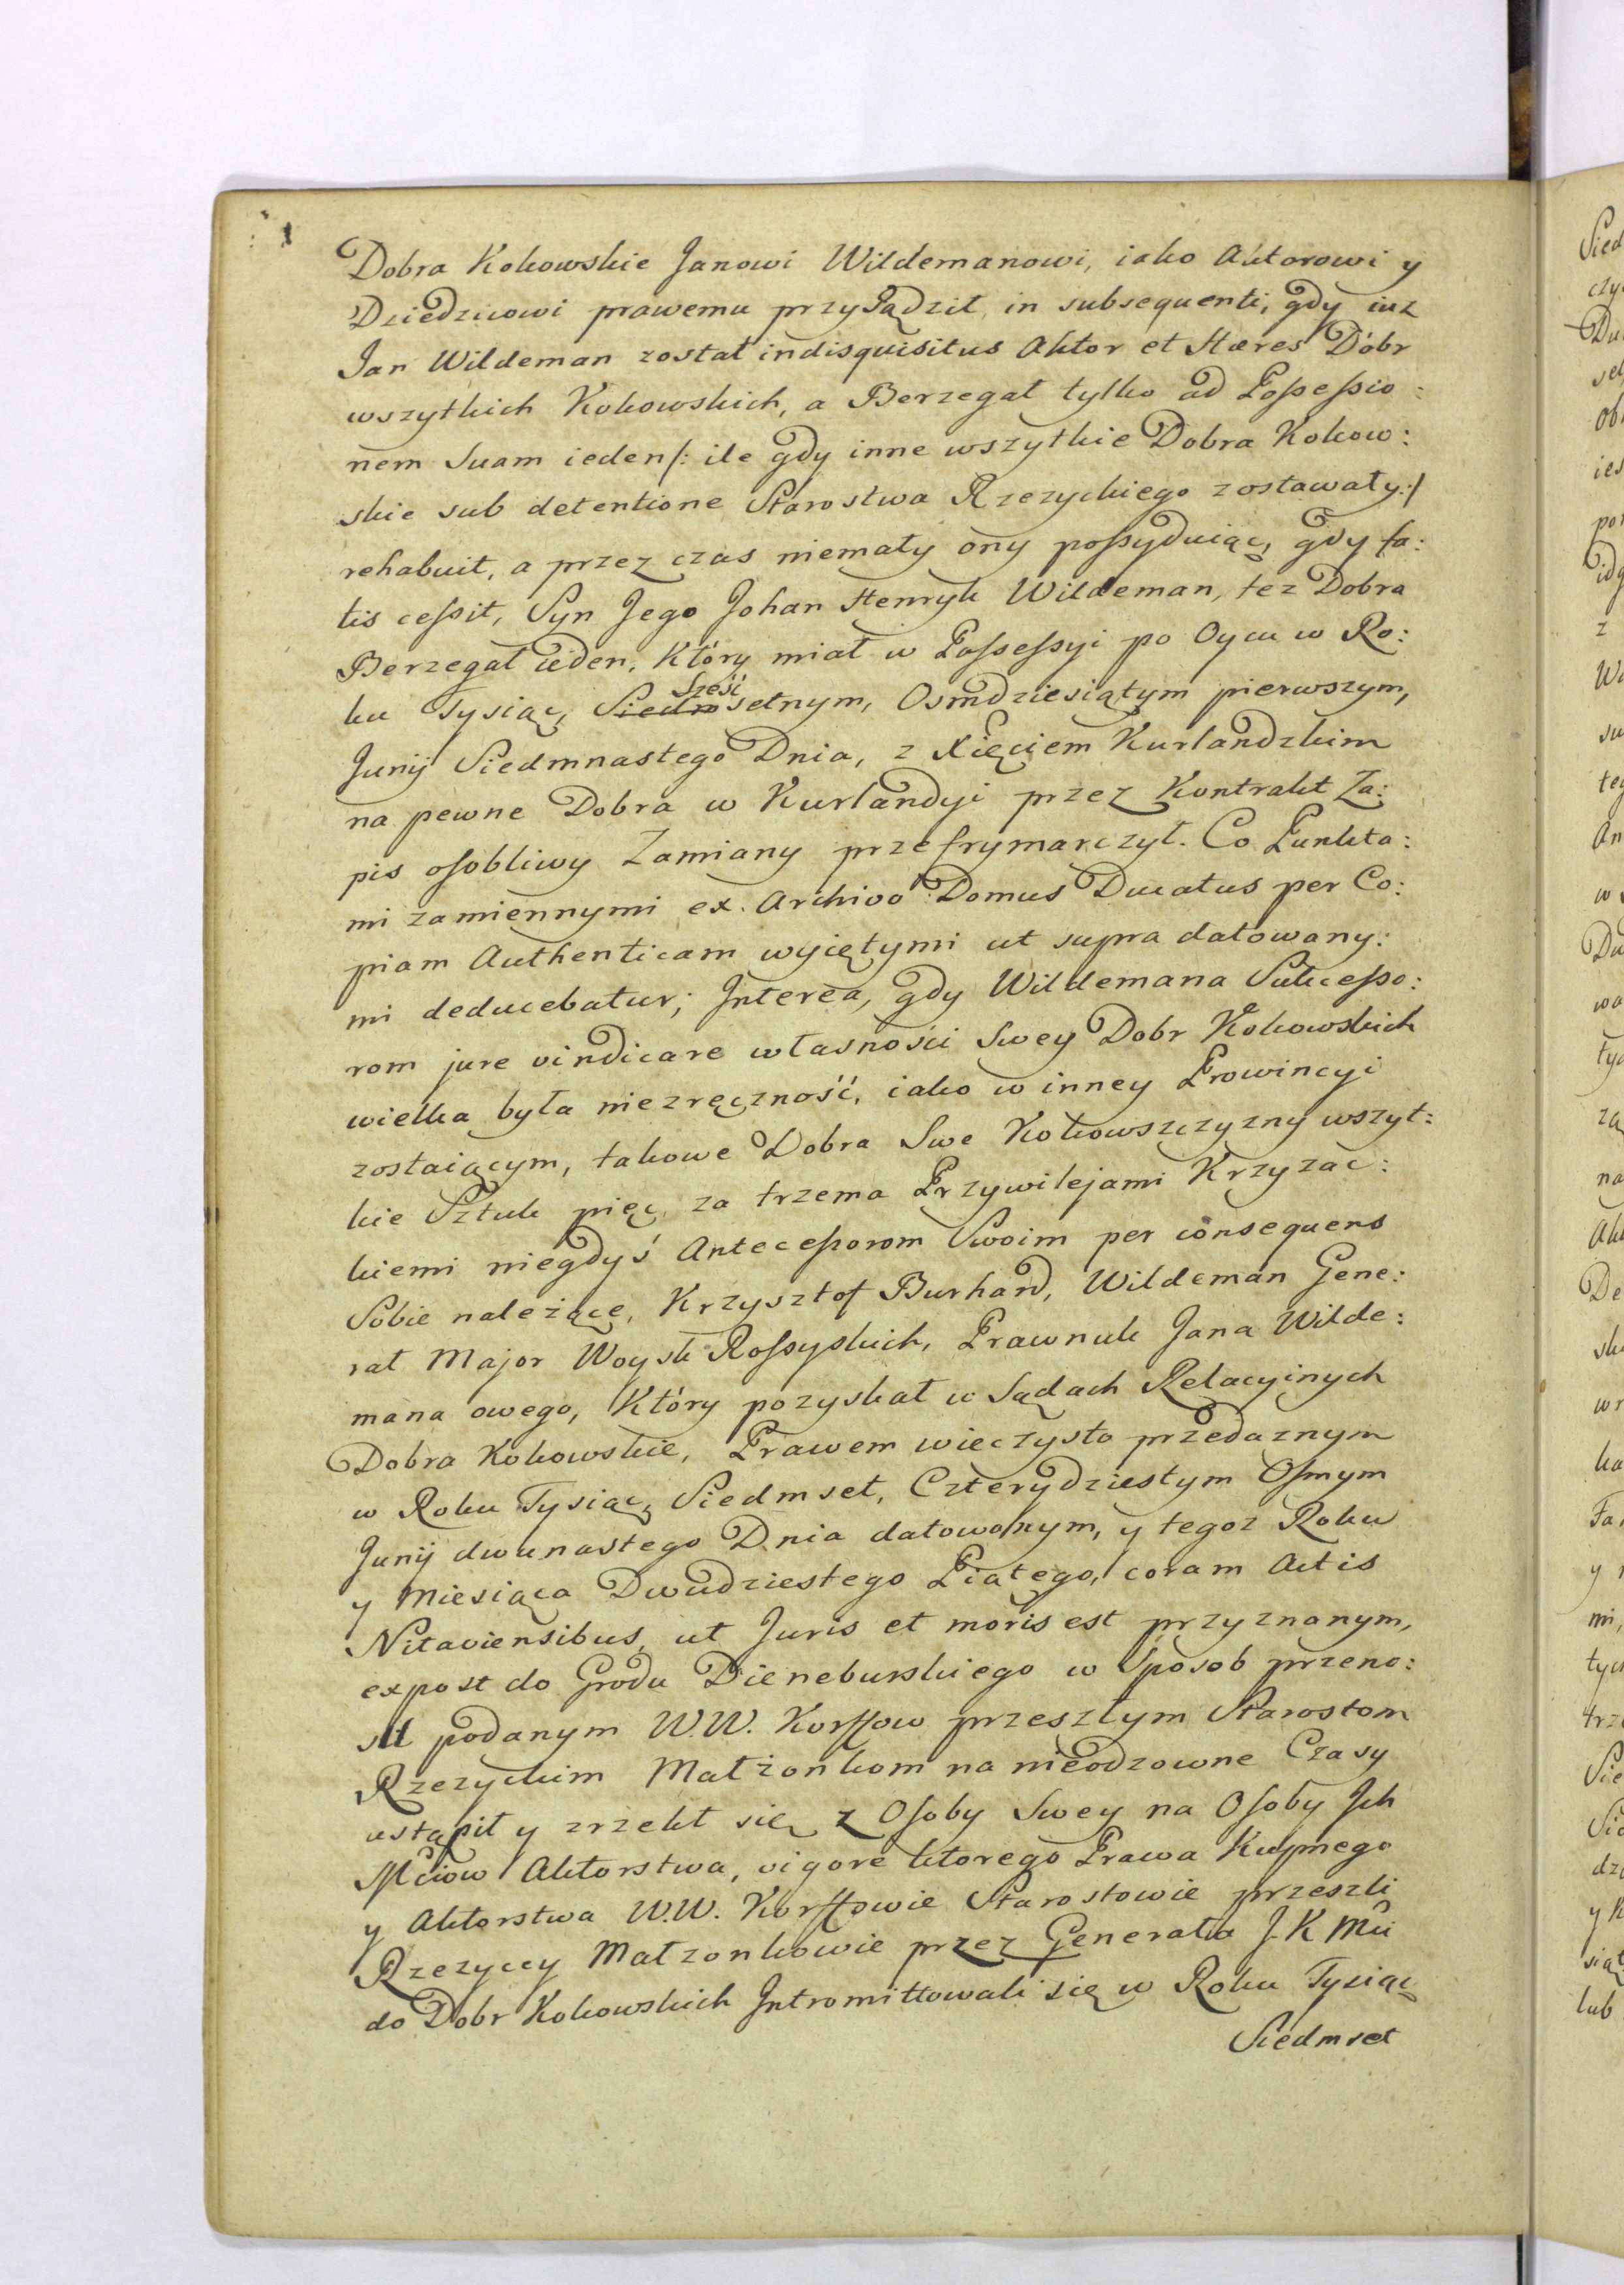 Dobra Kokowskie Janowi Wildemanowi, iako Aktorowi y
Dziedzicowi prawemu przysądził, in subsequenti, gdy iuz
Jan Wildeman został indisquisitus Aktor et Hæres Dóbr
wszytkich Kokowskich, a Berzegał tylko ad Possessio:
nem Suam ieden /: ile gdy inne wszytkie Dobra Kokow:
skie sub detentione Starostwa Rzezyckiego zostawały :/
rehabuit, a przez czas niemały ony possyduiąc, gdy fa:
tis cessit, Syn Jego Johan Henryk Wildeman, tez Dobra
Berzegał ieden, Który miał w Possessyi po Oycu w Ro:
ku Tysiąc, Siedm Sześć setnym, Osmdziesiątym pierwszym,
Junij Siedmnastego Dnia, z Xięciem Kurlandzkim
na pewne Dobra w Kurlandyi przez Kontrakt Za:
pis osobliwy Zamiany przefrymarczył. Co Punkta:
mi zamiennymi ex Archivo Domus Ducatus per Co:
piam Authenticam wyiętymi ut supra datowany:
mi deducebatur; Interea, gdy Wildemana Sukcesso:
rom jure vindicare własności Swey Dobr Kokowskich
wielka była niezręczność, iako w inney Prowincyi
zostaiącym, takowe Dobra Swe Kokowszczyzny wszyt:
kie Sztuk pięc za trzema Przywilejami Krzyzac:
kiemi niegdyś Antecessorom Swoim per consequens
Sobie należące, Krzysztof Burhard, Wildeman Gene:
rał Major Woysk Rossyskich, Prawnuk Jana Wilde:
mana owego, Który pozyskał w Sądach Relacyinych
Dobra Kokowskie, Prawem wieczysto przedaznym
w Roku Tysiąc, Siedmset, Czterydziestym Osmym
Junij dwunastego Dnia datowonym, y tegoz Roku
y Miesiąca Dwudziestego Piątego, coram Actis
Nitaviensibus, ut Juris et moris est przyznanym,
expost do Grodu Dieneburskiego w Sposob przeno:
su podanym W.W. Korffow przeszłym Starostom
Rzezyckim Małżonkom na nieodzowne Czasy
ustąpił y zrzekł się z Osoby Swey na Osoby Ich
Mciow Aktorstwa, vigore ktorego Prawa Kupnego
y Aktorstwa W.W. Korffowie Starostowie przeszli
Rzezyccy Małzonkowie przez Generała J. K Mci
do Dobr Kokowskich Intromittowali się w Roku Tysiąc
Siedmset